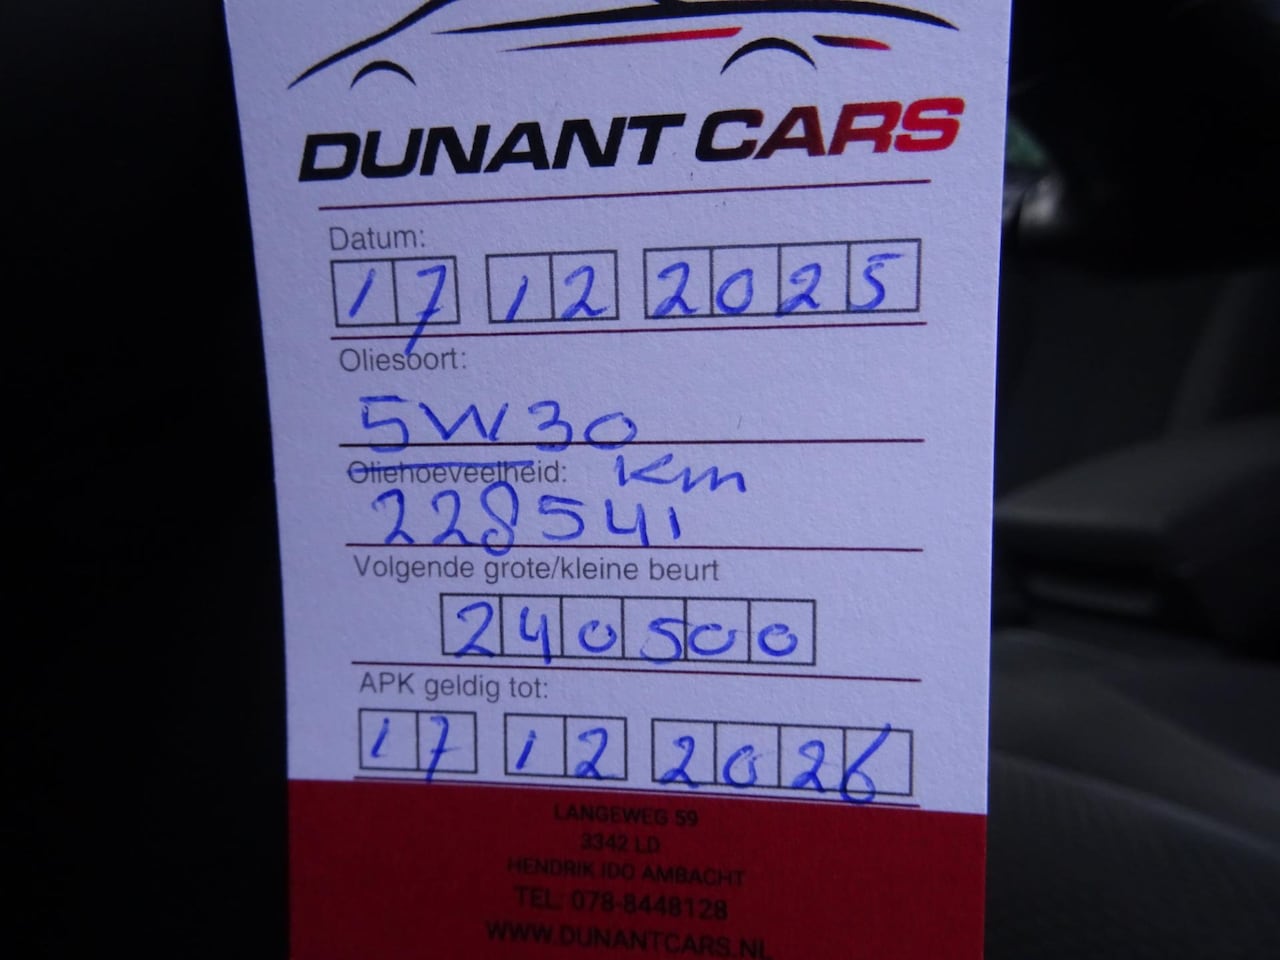 DUNANT CARS
Datum:
17 12 2025
Oliesoort:
5W30
Oliehoeveelheid: Km
228541
Volgende grote/kleine beurt
240500
APK geldig tot:
17 12 2026
LANGEWEG 59
3342 LD
HENDRIK IDO AMBACHT
TEL: 078-8448128
WWW.DUNANTCARS.NL